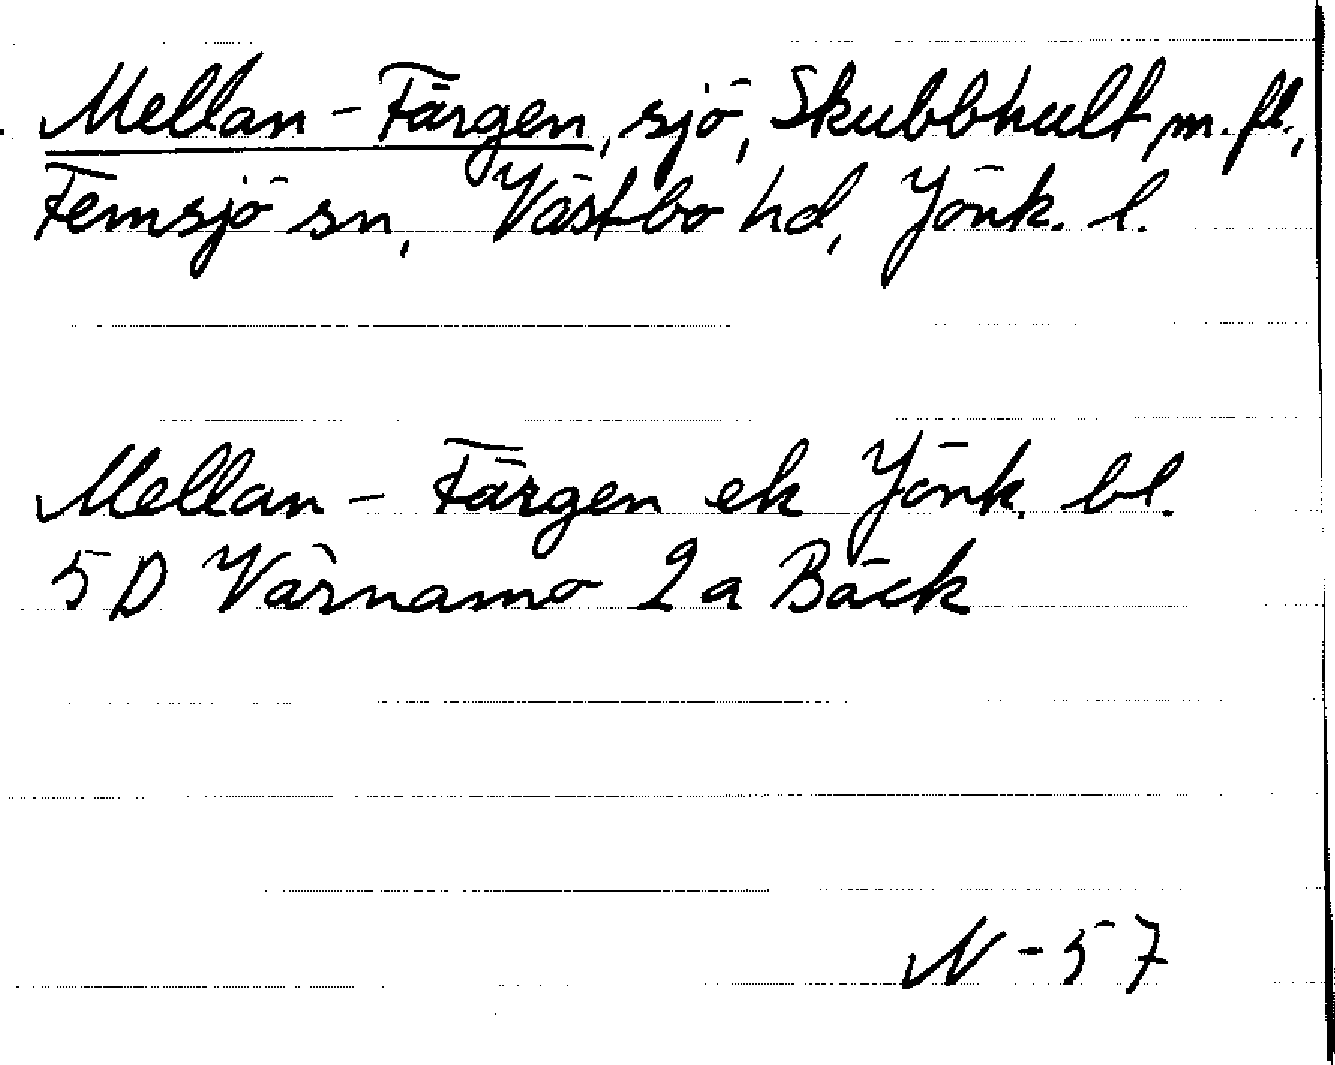 Mellan-Färgen, sjö, Skubbhult m. fl.,
Femsjö sn, Västbo hd, Jönk. l.
Mellan-Färgen ek Jönk. bl.
5D Värnamo 2a Bäck
N-57